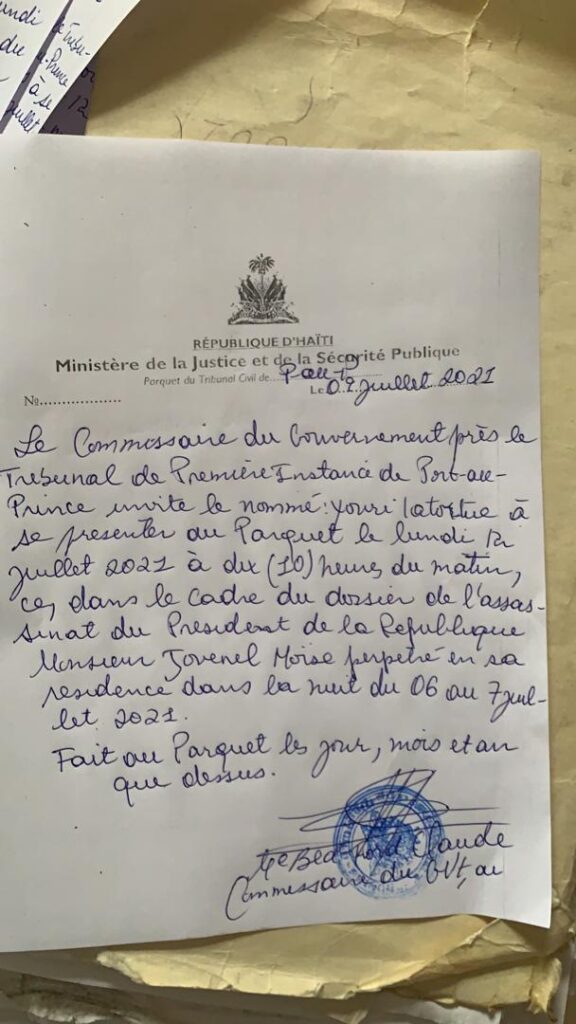 undi
du
à se
12
juillet
RÉPUBLIQUE D'HAÏTI
Ministère de la Justice et de la Sécurité Publique
Parquet du Tribunal Civil de... P-au-P
No.................. Le 09 juillet 2021
Le Commissaire du Gouvernement près le
Tribunal de Première Instance de Port-au-
Prince invite le nommé: Youri latortue à
se presenter au Parquet le lundi 12
juillet 2021 à dix (10) heures du matin,
ce, dans le cadre du dossier de l'assas-
sinat du President de la République
Monsieur Jovenel Moïse perpetré en sa
residence dans la nuit du 06 au 7 juil-
let 2021.
Fait au Parquet les jour, mois et an
que dessus.
Me Bed-Ford Claude
Commissaire du GVt, ai